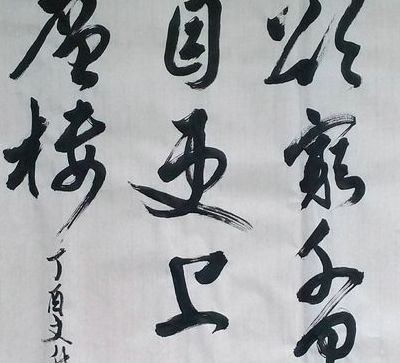 欲窮千里
目更上
層樓
丁酉文